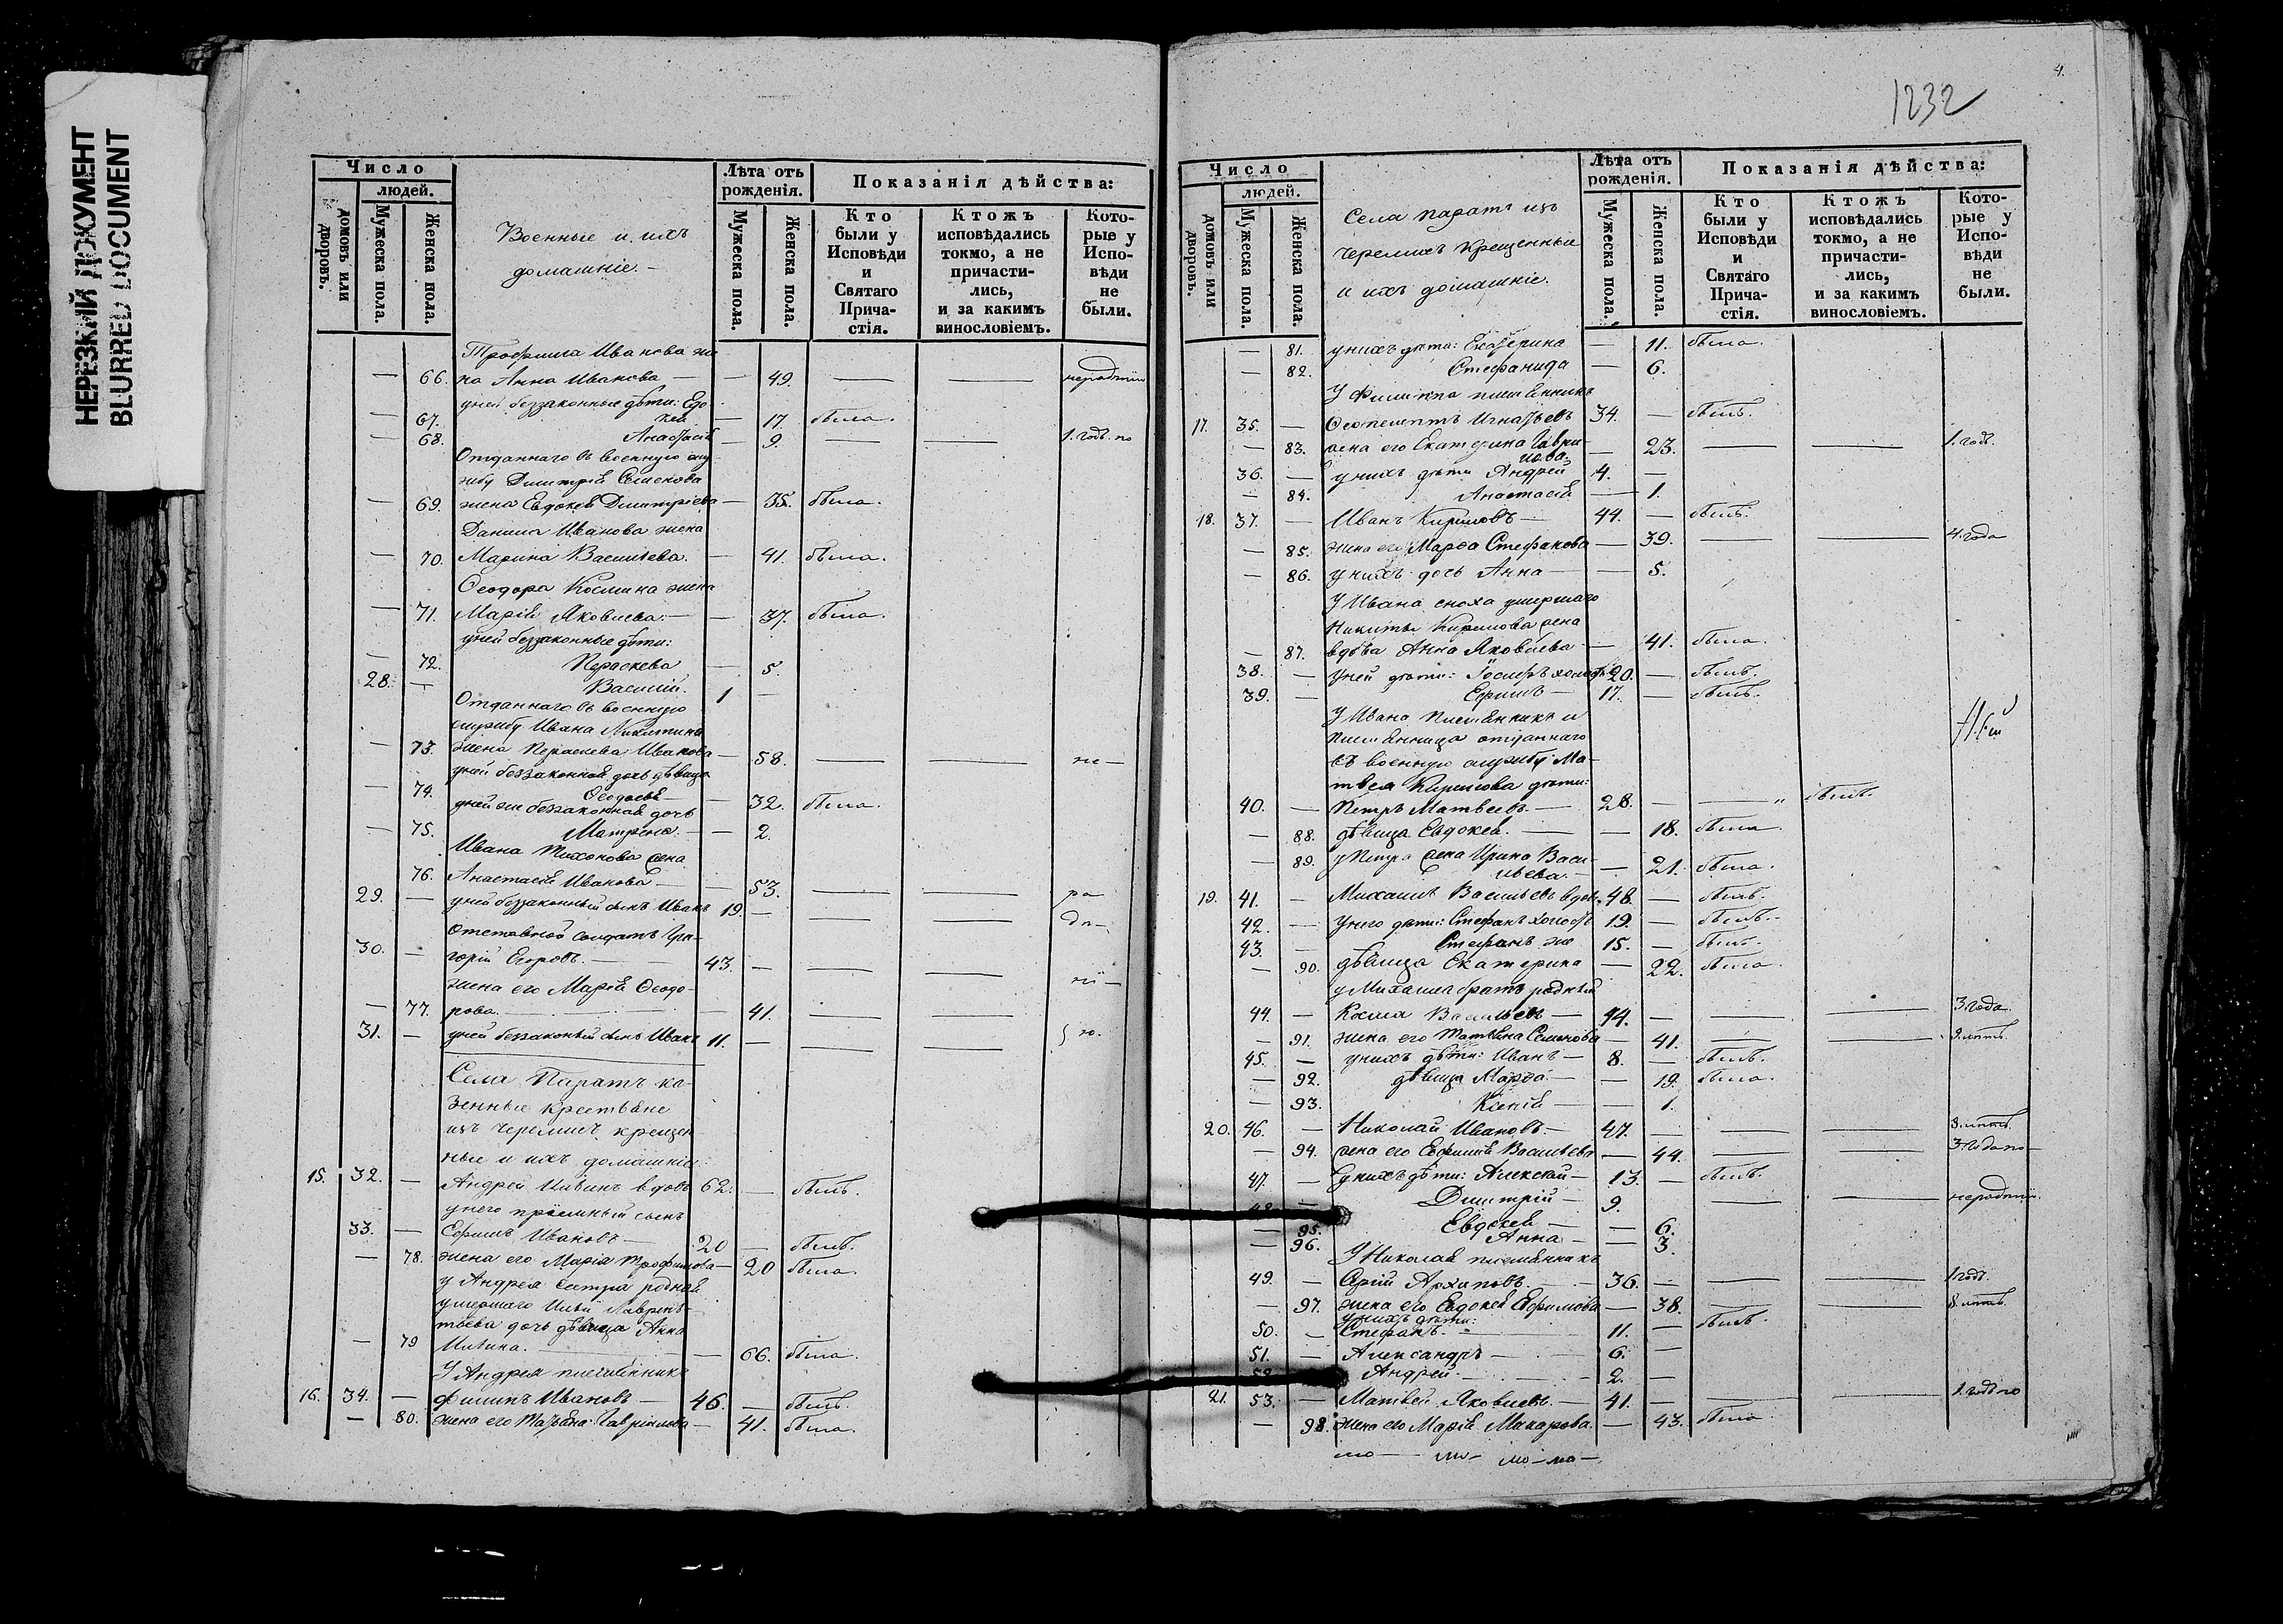 НЕРЕЗКИЙ ДОКУМЕНТ
BLURRED DOCUMENT
Число
людей.
домовъ или дворовъ.
Мужеска пола.
Женска пола.
Военные и ихъ
домашніе.
Лѣта отъ рожденія.
Мужеска пола.
Женска пола.
Показанія дѣйства:
Кто были у Исповѣди и Святаго Причастія.
Ктожъ исповѣдались токмо, а не причастились, и за какимъ винословіемъ.
Которые у Исповѣди не были.
Трофима Иванова же
— 66. на Анна Иванова — — 49. — —
у ней беззаконные дѣти: Евдо
— 67. кея — 17. была.
— 68. Анастасія — 9. — — 1. годъ. по
Отданнаго въ военную слу
жбу Димитрія Семенова
— 69. жена Евдокея Димитріева — 35. была.
Данила Иванова жена
— 70. Марина Васильева. — 41. была.
Ѳеодора Космина жена
— 71. Марія Яковлева. — — 37. была.
у ней беззаконные дѣти:
— 72. Пераскева — 5.
28. — Василій. 1 —
Отданнаго въ военную
службу Ивана Никитина
— 73. жена Пераскева Иванова — 58. — — не —
у ней беззаконная дочь дѣвица
— 74. Ѳеодосья — — 32. была.
у ней же беззаконная дочь
— 75. Матрена. — — 2.
Ивана Тихонова жена
76. Анастасія Иванова — — 53. — — ра —
29. — у ней беззаконный сынъ Иванъ 19. — — —
Отставной солдатъ Гри-
30. — горій Егоровъ. — 43. — — —
жена его Марія Ѳеодо-
— 77. рова. — — 41. — —
31. — у ней беззаконый сынъ Иванъ 11. — — —
Села Паратъ ка-
зенные крестьяне
изъ черемисъ крещен
ные и ихъ домашніе:
15. 32. — Андрей Ильинъ вдовъ 62. — былъ.
у него пріемный сынъ
33. — Ефимъ Ивановъ — 20 — былъ.
— 78. жена его Марія Трофимова — 20 была.
у Андрея сестра родная
умершаго Ильи Лаврень-
тьева дочь дѣвица Анна
— 79 Ильина. — — 66. была.
У Андрея племянникъ
16. 34. — Филипъ Ивановъ — 46. — былъ.
— 80. жена его Татьяна Гаврилова — 41. была.
4.
1232
Число
людей.
домовъ или дворовъ.
Мужеска пола.
Женска пола.
Села Паратъ изъ
Черемисъ Крещенные
и ихъ домашніе.
Лѣта отъ рожденія.
Мужеска пола.
Женска пола.
Показанія дѣйства:
Кто были у Исповѣди и Святаго Причастія.
Ктожъ исповѣдались токмо, а не причастились, и за какимъ винословіемъ.
Которые у Исповѣди не были.
— 81. у нихъ дѣти: Екатерина — 11. была.
— 82. Стефанида — 6.
У Филиппа племянникъ
17. 35. — Ѳеопемптъ Игнатьевъ 34. — былъ.
— 83. жена его Екатерина Гаври-
лова. — 23. — — 1. годъ.
36. — у нихъ дѣти Андрей 4. —
— 84. Анастасія — 1.
18. 37. — Иванъ Кириловъ — 44. — былъ.
— 85. жена его Марѳа Стефанова — 39. — — 4. года
— 86. у нихъ дочь Анна — — 5.
У Ивана сноха умершаго
Никиты Кирилова жена
— 87. вдова Анна Яковлева — — 41. была.
38. — у ней дѣти: Іосифъ холостъ 20. — былъ.
39. — Ефимъ — 17. — былъ.
У Ивана племянникъ и
племянница отданнаго
въ военную службу Ма-
твея Кирилова дѣти:
40. — Петръ Матвеевъ. — 28. — — былъ.
— 88. дѣвица Евдокея. — — 18. была
— 89. у Петра жена Ирина Васи-
льева. — — 21. была.
19. 41. — Михаилъ Васильевъ вдов. 48. — былъ.
42. — У него дѣти: Стефанъ холостъ 19. — былъ.
43. — Стефанъ же 15. — былъ.
— 90. дѣвица Екатерина — 22. была.
у Михаила братъ родный
44. — Косма Васильевъ — 44. — — — 3 года.
— 91. жена его Татьяна Семенова — 41. — —
45. — у нихъ дѣти: Иванъ — 8. — былъ.
— 92. дѣвица Марѳа. — — 19. была.
— 93. Ксенія — — 1.
20. 46. — Николай Ивановъ. — 47. — — — 8. лѣтъ.
— 94. жена его Евфимія Васильева — 44. — — 3 года по —
47. — У нихъ дѣти: Алексѣй — 13. — былъ.
48. — Димитрій — 9. — —
— 95. Евдокея — — 6.
— 96. Анна — — 3.
У Николая племянникъ
49. — Архипъ Архиповъ. — 36. — — — 1 годъ.
— 97. жена его Евдокея Ефимова — 38. — — 8. лѣтъ.
У нихъ дѣти:
50. — Стефанъ. — 11. — былъ.
51. — Александръ — 6. —
52. — Андрей. — 2. —
21. 53. — Матвей Яковлевъ. — 41. — — — 1. годъ по
— 98. жена его Марія Макарова. — 43. была